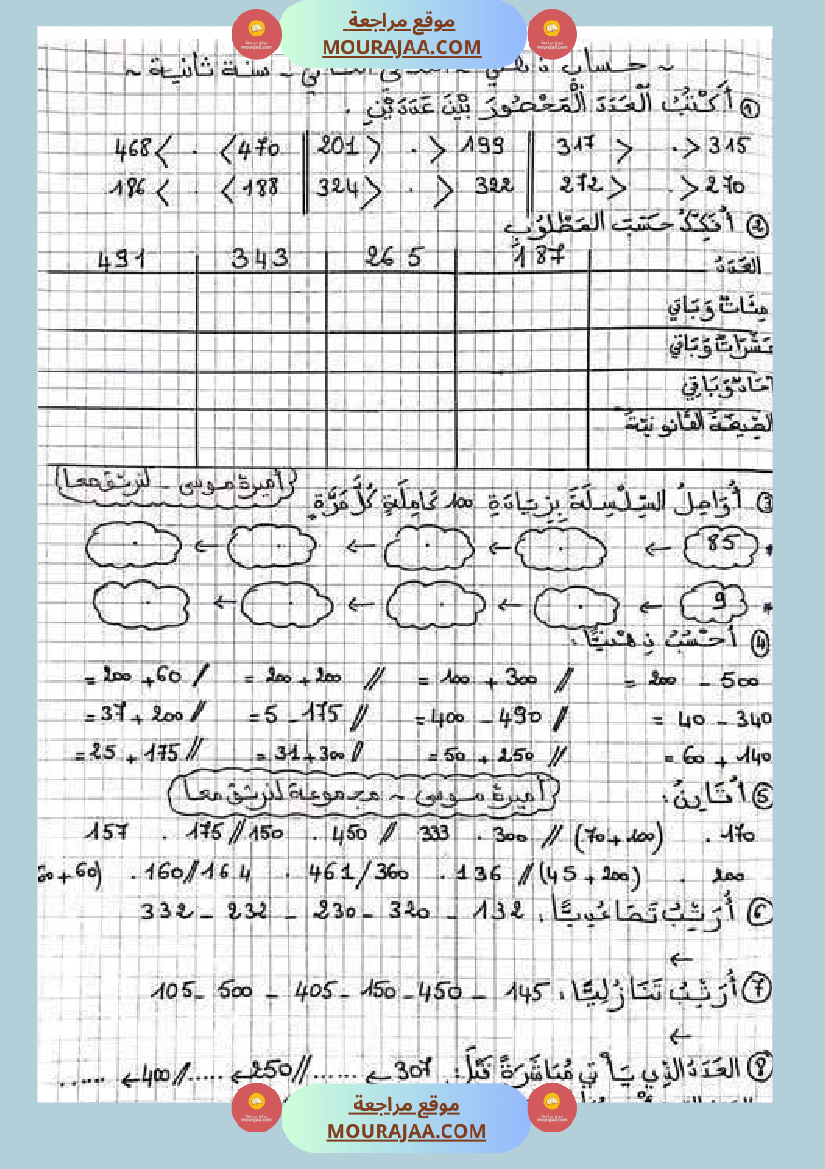 موقع مراجعة
MOURAJAA.COM
~ حساب ذهني ~ سنة ثانية ~
① أَكْتُبُ الْعَدَدَ الْمَحْصُورَ بَيْنَ عَدَدَيْنِ .
315 < . < 317 || 199 < . < 201 || 470 > . > 468
270 < . < 272 || 322 < . < 324 || 188 > . > 186
② أُفَكِّكُ حَسَبَ المَطْلُوبِ
العَدَدُ 187 265 343 491
مِئَاتٌ وَبَاقِي
عَشَرَاتٌ وَبَاقِي
آحَادٌ وَبَاقِي
الصِّيغَةُ القَانُونِيَّةُ
③ أُوَاصِلُ السِّلْسِلَةَ بِزِيَادَةِ 100 كَامِلَةٍ كُلَّ مَرَّةٍ
أميرة موسى - لنرتق معا
* 85 ← . ← . ← . ← .
* 9 ← . ← . ← . ← .
④ أَحْسُبُ ذِهْنِيًّا :
500 - 200 = // 300 + 100 = // 200 + 200 = // 60 + 200 =
340 - 40 = // 490 - 400 = // 175 - 5 = // 200 + 37 =
140 + 60 = // 250 + 50 = // 300 + 31 = // 175 + 25 =
⑤ أُقَارِنُ :
أميرة موسى ~ مجموعة لنرتق معا
170 . (100 + 70) // 300 . 333 // 450 . 150 // 175 . 157
200 . (200 + 45) // 136 . 360 / 461 . 164 // 160 .
⑥ أُرَتِّبُ تَصَاعُدِيًّا : 132 - 320 - 230 - 232 - 332
←
⑦ أُرَتِّبُ تَنَازُلِيًّا : 145 - 450 - 150 - 405 - 500 - 105
←
⑧ العَدَدُ الذِي يَأْتِي مُبَاشَرَةً قَبْلَ : 307 ← ...... // 250 ← ...... // 400 ← ......
موقع مراجعة
MOURAJAA.COM